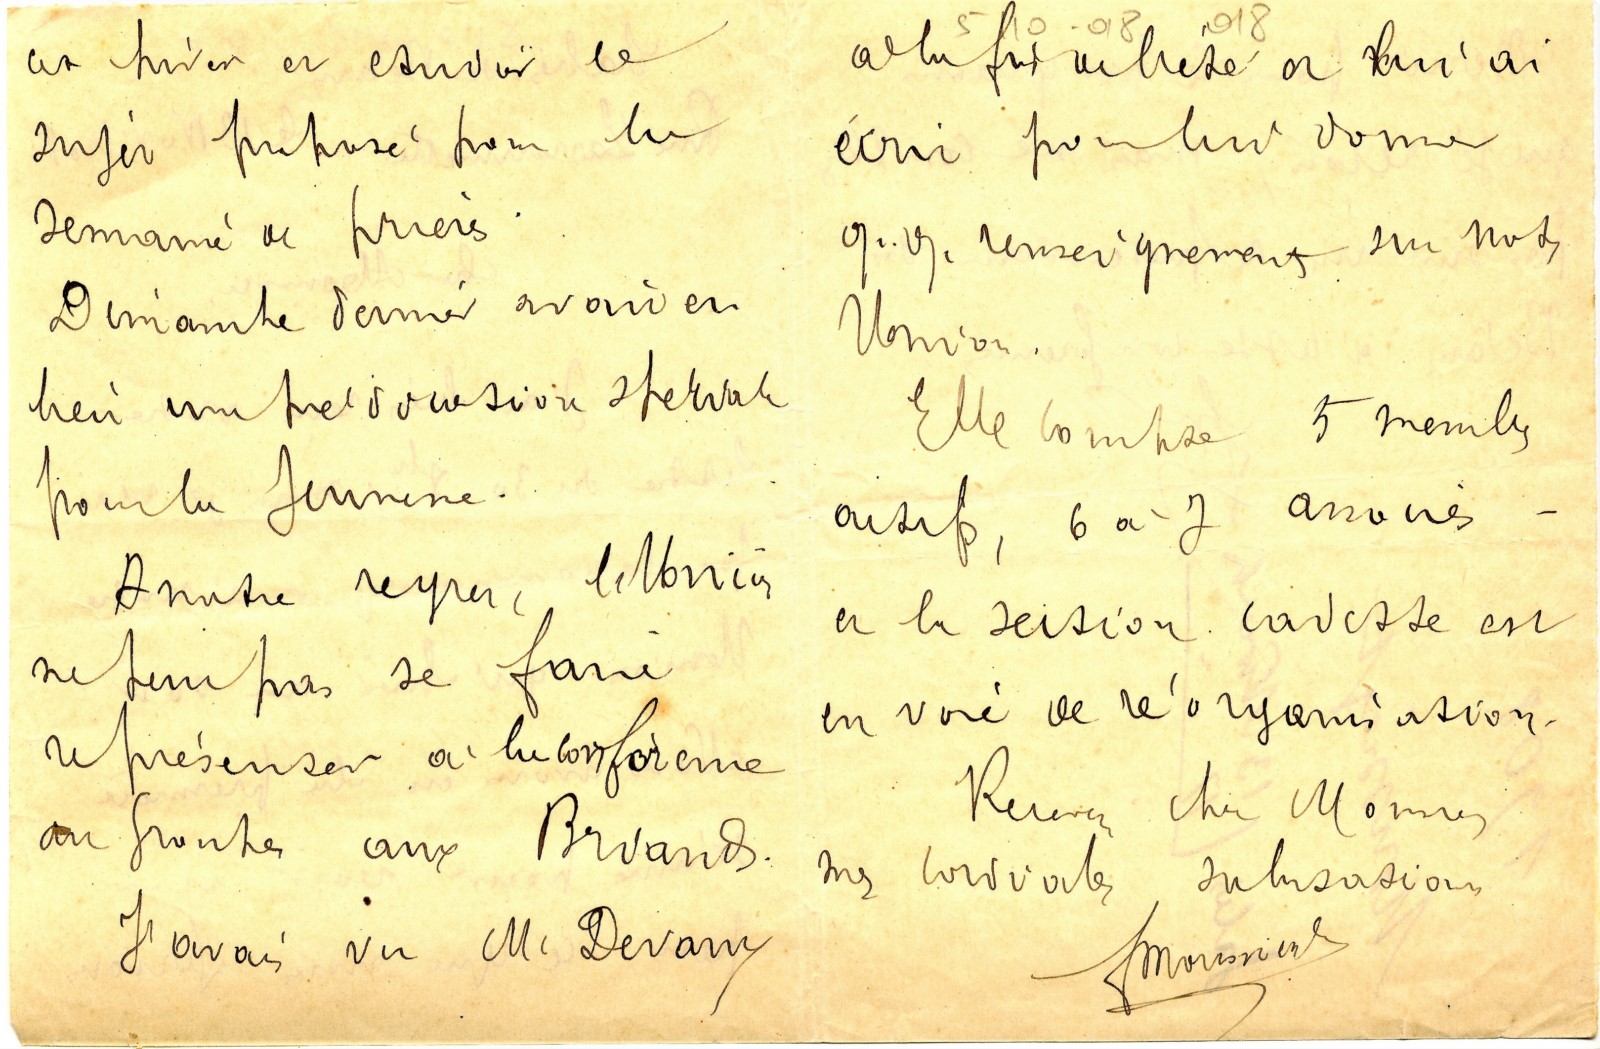 et prier et étudier le
sujet proposé pour la
semaine de prière.
Dimanche dernier avait eu
lieu une prédication spéciale
pour la Jeunesse.
A notre regret, l'Union
ne peut pas se faire
représenter à la conférence
au aux Briands.
J'avais vu M. Devaux
5 10 - 918 918
à la fin et lui ai
écrit pour lui donner
q.q. renseignements sur notre
Union.
Elle compte 5 membres
actifs, 6 à 7 associés -
et la section cadette est
en voie de réorganisation.
Recevez cher Monsieur
mes cordiales salutations